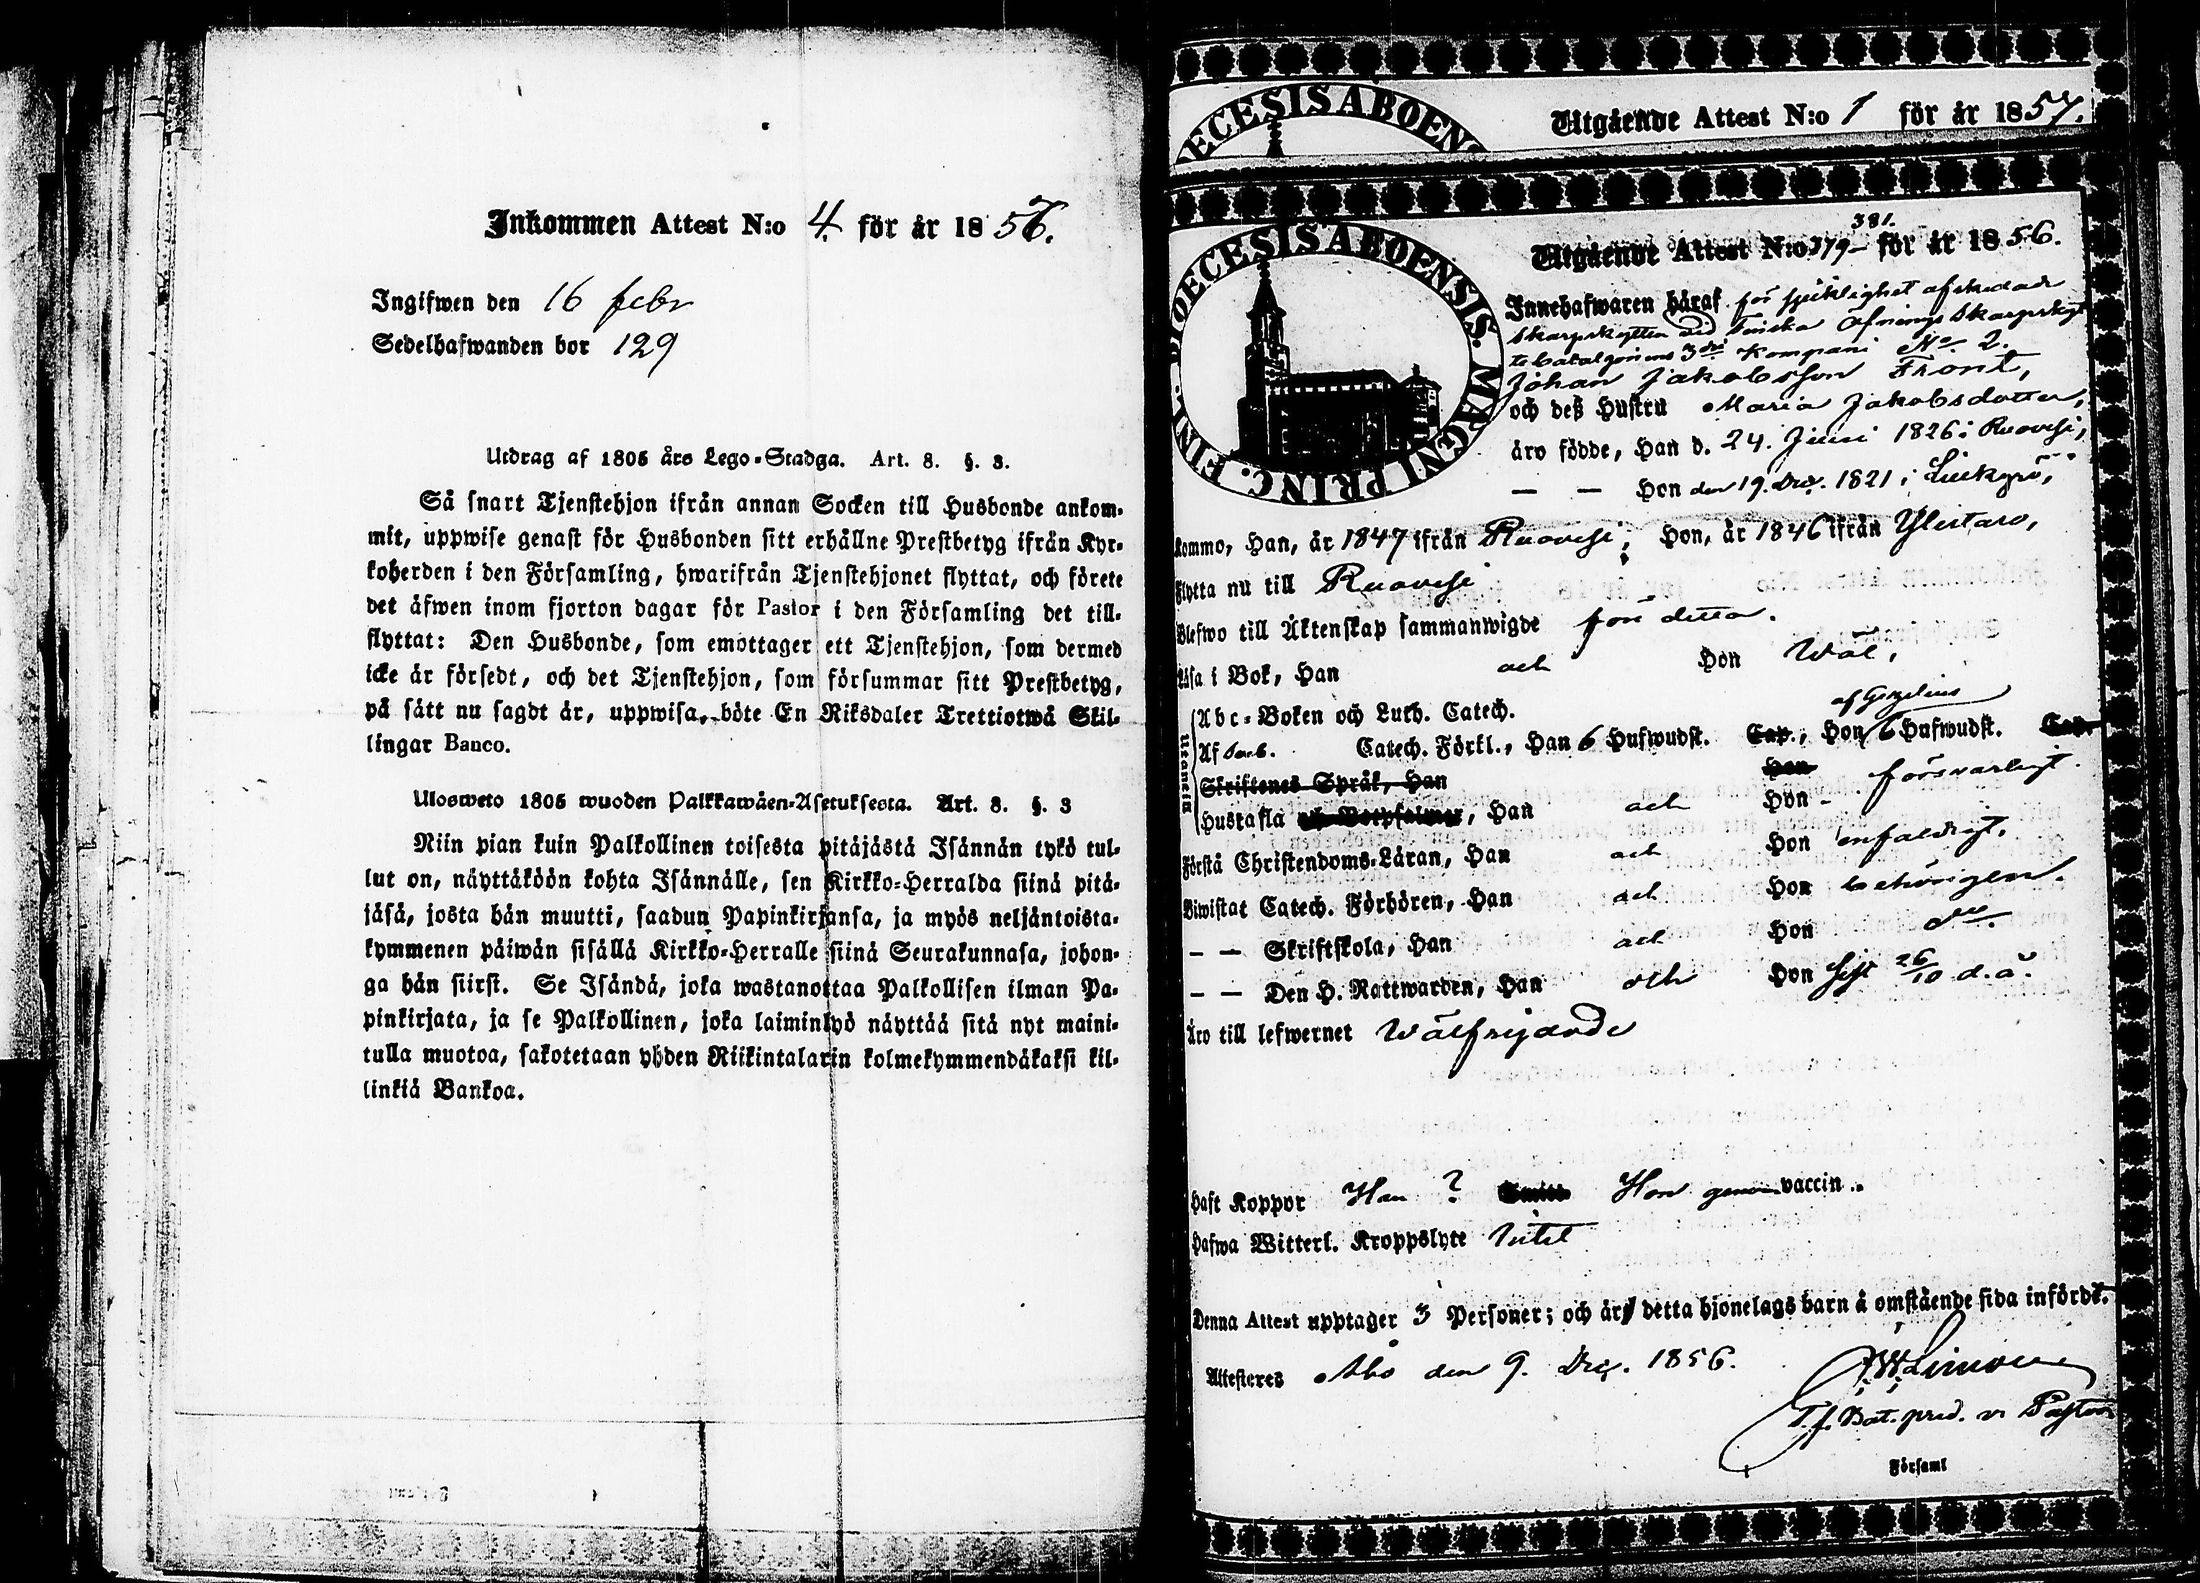 Inkommen Attest N:o 4. för år 1857.
Ingifwen den 16 febr
Sedelhafwanden bor 129
Utdrag af 1805 års Lego-Stadga. Art. 8. §. 3.
Så snart Tjenstehjon ifrån annan Socken till Husbonde ankom-
mit, uppwise genast för Husbonden sitt erhållne Prestbetyg ifrån Kyr-
koherden i den Församling, hwarifrån Tjenstehjonet flyttat, och förete
det äfwen inom fjorton dagar för Pastor i den Församling det till-
flyttat: Den Husbonde, som emottager ett Tjenstehjon, som dermed
icke är försedt, och det Tjenstehjon, som försummar sitt Prestbetyg,
på sätt nu sagdt är, uppwisa, böte En Riksdaler Trettiotwå Skil-
lingar Banco.
Ulosweto 1805 wuoden Palkkawäen-Asetuksesta. Art. 8. §. 3
Niin pian kuin Palkollinen toisesta pitäjästä Isännän tykö tul-
lut on, näyttäköön kohta Isännälle, sen Kirkko-Herralda siinä pitä-
jäsä, josta hän muutti, saadun Papinkirjansa, ja myös neljäntoista-
kymmenen päiwän sisällä Kirkko-Herralle siinä Seurakunnasa, johon-
ga hän siirst. Se Isändä, joka wastanottaa Palkollisen ilman Pa-
pinkirjata, ja se Palkollinen, joka laiminlyö näyttää sitä nyt maini-
tulla muotoa, sakotetaan yhden Riikintalarin kolmekymmendäkaksi kil-
linkiä Bankoa.
ECESIS ABOEN
Utgående Attest N:o 1 för år 1857.
DIOECESIS ABOENSIS. MAGNI PRINC. FINL.
381.
Utgående Attest N:o 379- för år 1856.
Innehafwaren häraf för sjuklighet afskedade
skarpskytten vid Finska Skarpskyt
tebataljonens 3dje Kompani No 2.
Johan Jakobsson Front,
och deß Hustru Maria Jakobsdotter,
äro födde, Han d. 24. Juni 1826 i Ruovesi,
— — Hon den 19. Dec. 1821 i
kommo, Han, år 1847 ifrån Ruovesi; Hon, år 1846 ifrån Ylistaro,
flytta nu till Ruovesi
Blefwo till Äktenskap sammanwigde för detta.
Läsa i Bok, Han och Hon Wäl,
Utantill
Abc-Boken och Luth. Catech.
af Gezelius
Af Catech. Förkl., Han 6 Hufwudst. Cap., Hon 6 Hufwudst. Cap.
Skriftenes Språk, Han Hon
Hustafla och Botpsalmer, Han och Hon försvarligt.
Förstå Christendoms-Läran, Han och Hon enfaldigt.
Biwistat Catech. Förhören, Han och Hon behörigen.
— — Skriftskola, Han och Hon d:o
— — Den H. Nattwarden, Han och Hon sist 26/10 d. å.
Äro till lefwernet wälfrejdade
Haft Koppor Han ? Hon genom vaccin.
Hafwa Witterl. Kroppslyte intet
Denna Attest upptager 3 Personer; och är detta hjonelags barn å omstående sida infördt.
Attesteras Åbo den 9. Dec. 1856.
T. f. Bat. pred. v. Pastor
Församl